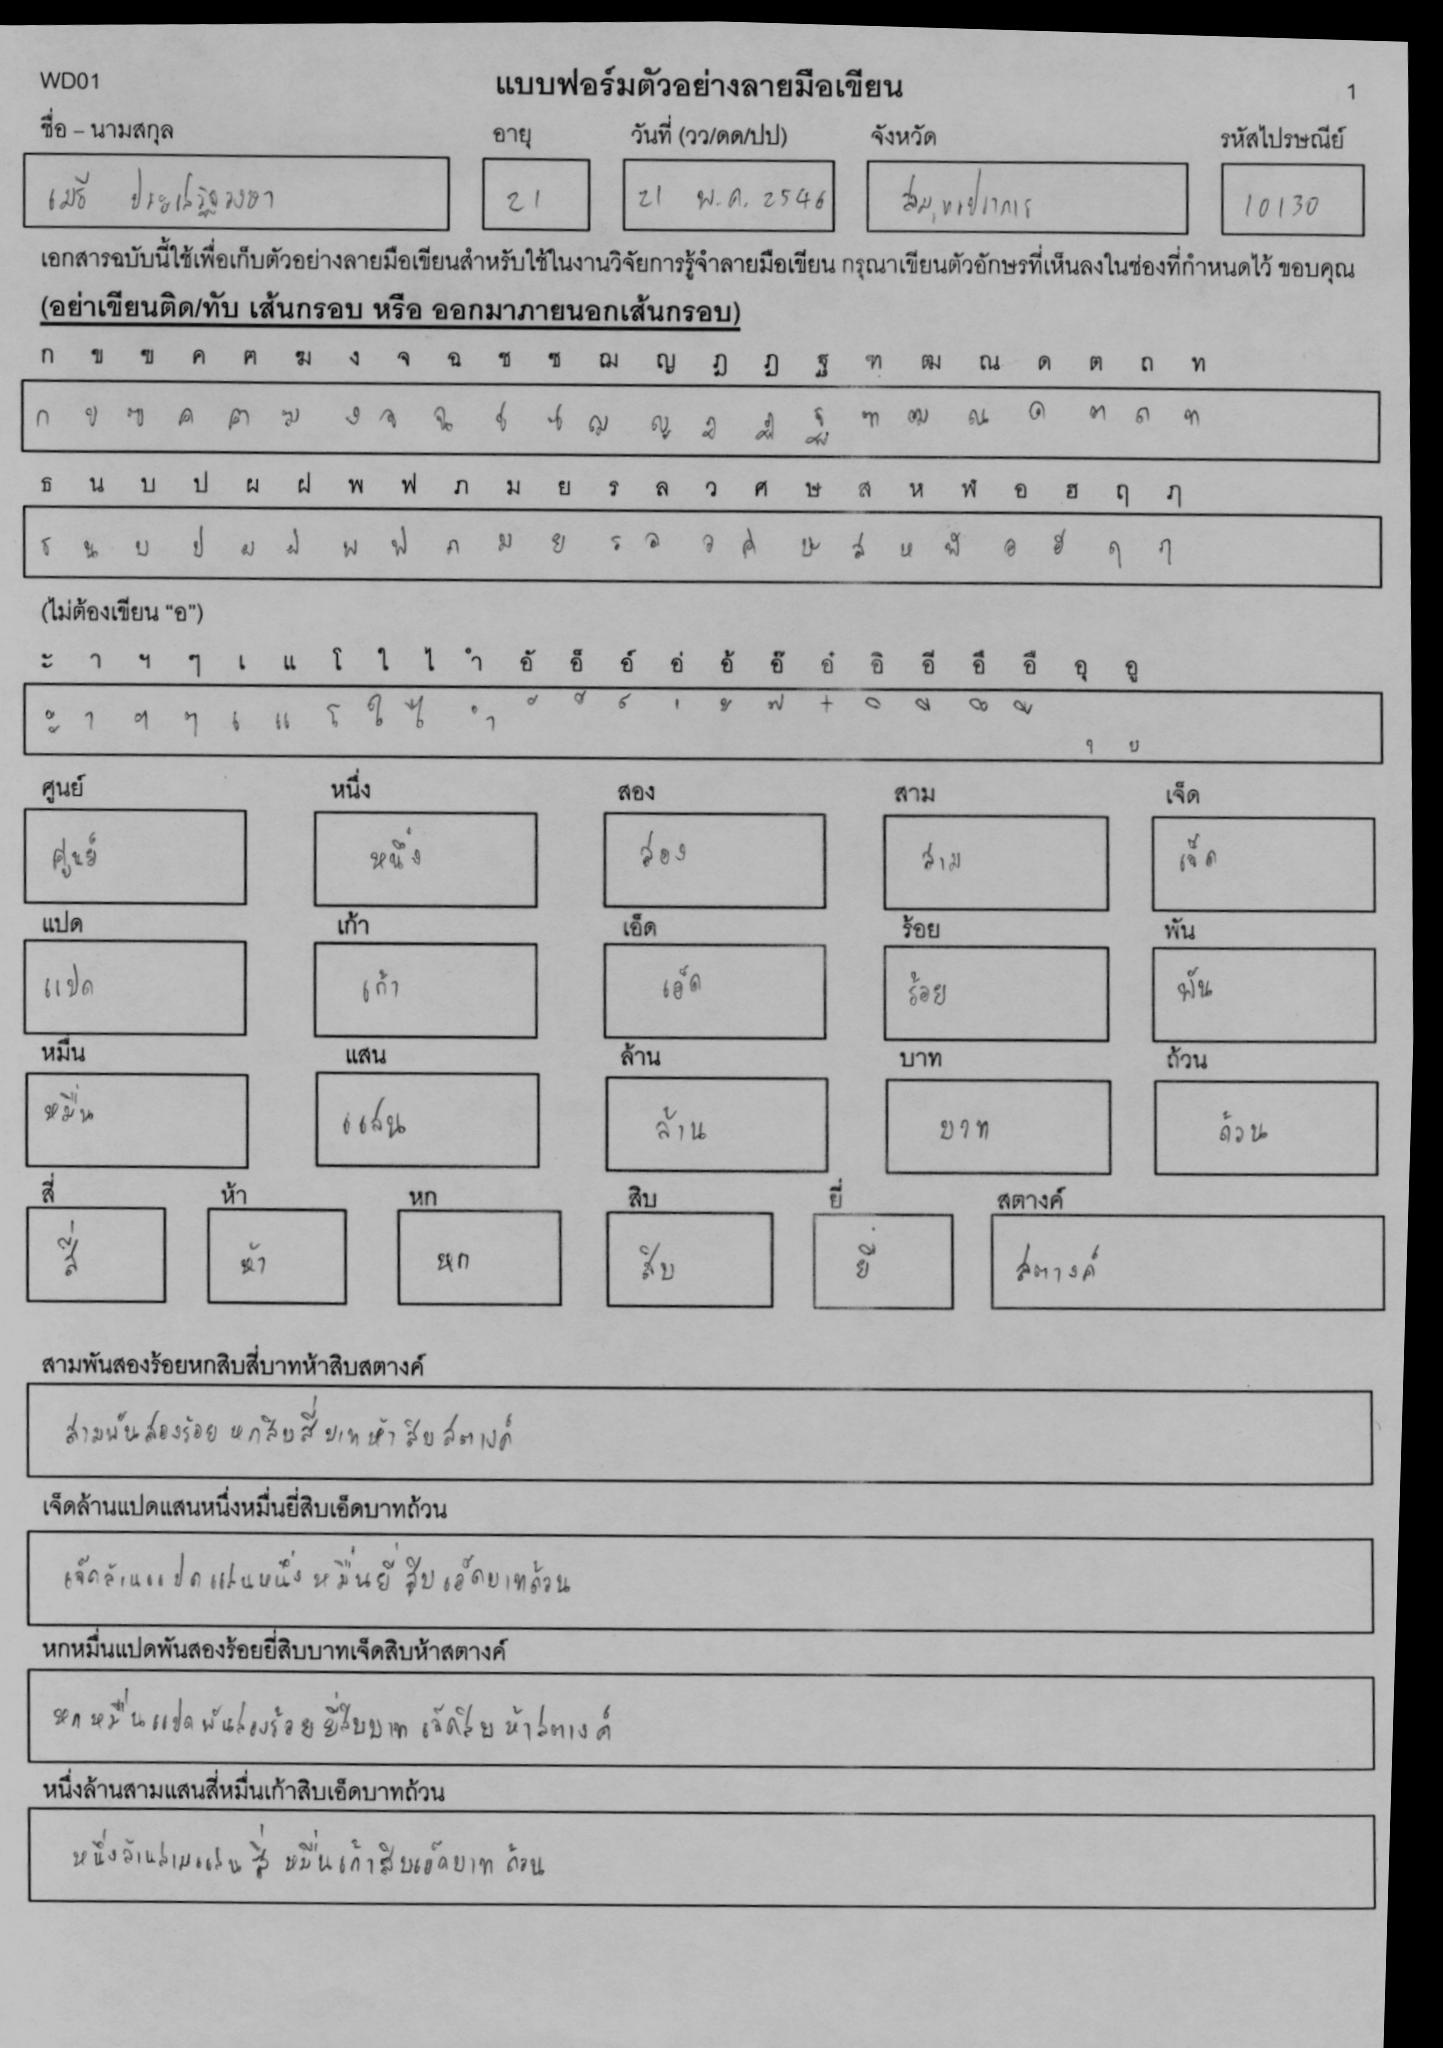 WD01 แบบฟอร์มตัวอย่างลายมือเขียน 1
ชื่อ – นามสกุล อายุ วันที่ (วว/ดด/ปป) จังหวัด รหัสไปรษณีย์
เมธี 21 21 พ.ค. 2546 สมุทรปราการ 10130
เอกสารฉบับนี้ใช้เพื่อเก็บตัวอย่างลายมือเขียนสำหรับใช้ในงานวิจัยการรู้จำลายมือเขียน กรุณาเขียนตัวอักษรที่เห็นลงในช่องที่กำหนดไว้ ขอบคุณ
(อย่าเขียนติด/ทับ เส้นกรอบ หรือ ออกมาภายนอกเส้นกรอบ)
ก ข ฃ ค ฅ ฆ ง จ ฉ ช ซ ฌ ญ ฎ ฏ ฐ ฑ ฒ ณ ด ต ถ ท
ก ข ฃ ค ฅ ฆ ง จ ฉ ช ซ ฌ ญ ฎ ฏ ฐ ฑ ฒ ณ ด ต ถ ท
ธ น บ ป ผ ฝ พ ฟ ภ ม ย ร ล ว ศ ษ ส ห ฬ อ ฮ ฤ ฦ
ธ น บ ป ผ ฝ พ ฟ ภ ม ย ร ล ว ศ ษ ส ห ฬ อ ฮ ฤ ฦ
(ไม่ต้องเขียน “อ”)
ะ า ฯ ๆ เ แ โ ใ ไ ำ อั อ็ อ์ อ่ อ้ อ๊ อ๋ อิ อี อึ อื อุ อู
ะ า ฯ ๆ เ แ โ ใ ไ ำ ั ็ ์ ่ ้ ๊ ๋ ิ ี ึ ื ุ ู
ศูนย์ หนึ่ง สอง สาม เจ็ด
ศูนย์ หนึ่ง สอง สาม เจ็ด
แปด เก้า เอ็ด ร้อย พัน
แปด เก้า เอ็ด ร้อย พัน
หมื่น แสน ล้าน บาท ถ้วน
หมื่น แสน ล้าน บาท ถ้วน
สี่ ห้า หก สิบ ยี่ สตางค์
สี่ ห้า หก สิบ ยี่ สตางค์
สามพันสองร้อยหกสิบสี่บาทห้าสิบสตางค์
สามพันสองร้อย หกสิบสี่บาทห้าสิบสตางค์
เจ็ดล้านแปดแสนหนึ่งหมื่นยี่สิบเอ็ดบาทถ้วน
เจ็ดล้านแปดแสนหนึ่งหมื่นยี่สิบเอ็ดบาทถ้วน
หกหมื่นแปดพันสองร้อยยี่สิบบาทเจ็ดสิบห้าสตางค์
หกหมื่นแปดพันสองร้อยยี่สิบบาท เจ็ดสิบห้าสตางค์
หนึ่งล้านสามแสนสี่หมื่นเก้าสิบเอ็ดบาทถ้วน
หนึ่งล้านสามแสนสี่ หมื่นเก้าสิบเอ็ดบาท ถ้วน